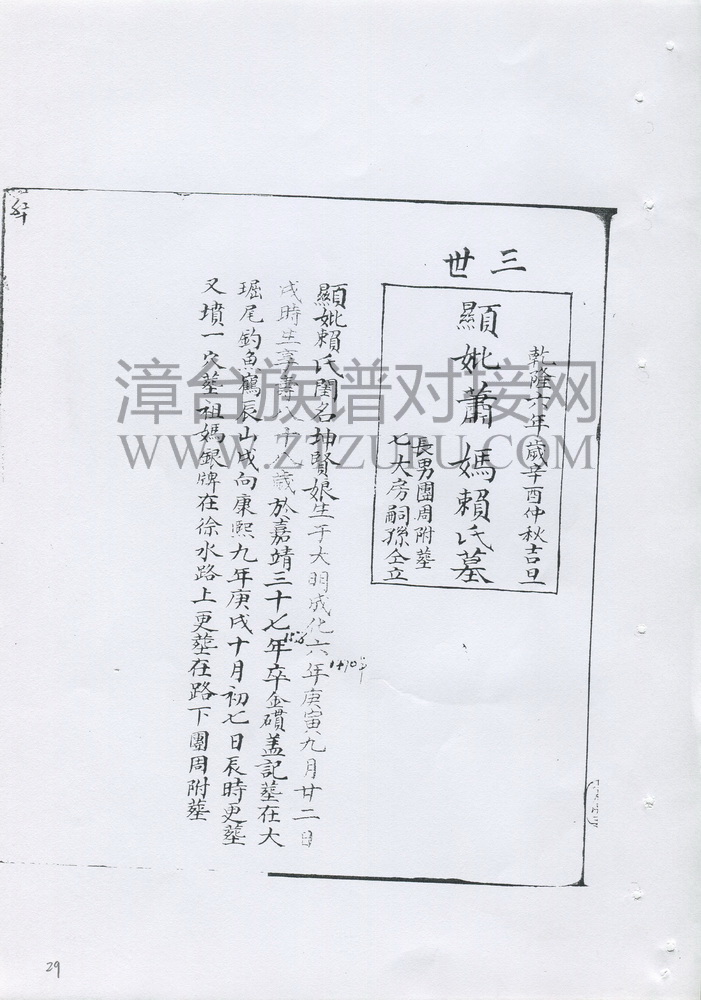 三世
乾隆六年歲辛酉仲秋吉旦
顯妣蕭媽賴氏墓
長男團周附墓
七大房嗣孫仝立
顯妣賴氏閨名坤賢娘生于大明成化六年庚寅九月廿二日
1470年
戌時生享壽八十八歲於嘉靖三十七年卒金磧盖記墓在大
1558
堀尾釣魚鶴辰山戌向康熙九年庚戌十月初七日辰時更墓
又墳一穴墓祖媽銀牌在徐水路上更墓在路下團周附墓
漳台族谱对接网
WWW.ZTZUPU.COM
29